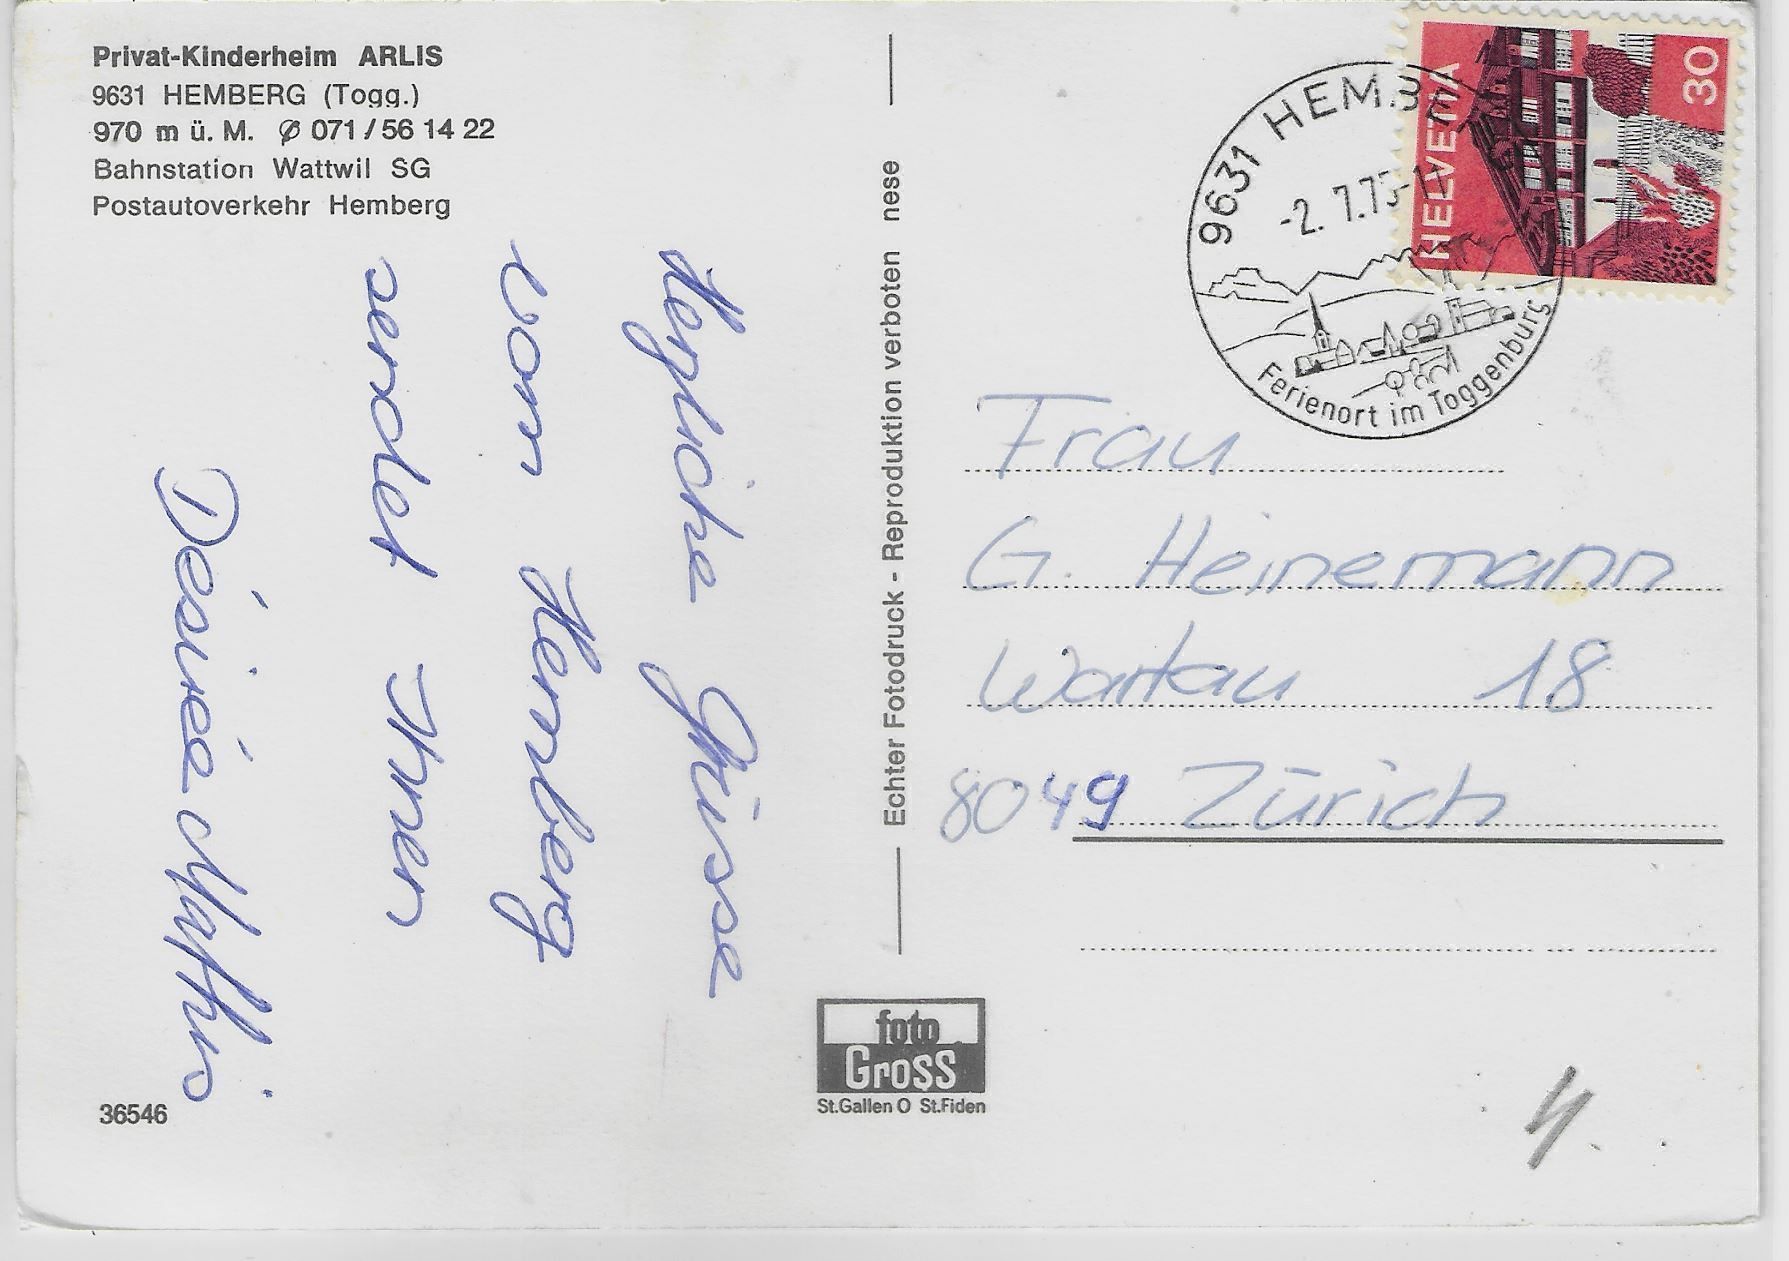 Privat-Kinderheim ARLIS
9631 HEMBERG (Togg.)
970 m ü. M. ∅ 071/56 14 22
Bahnstation Wattwil SG
Postautoverkehr Hemberg
Herzliche Grüsse
vom Hemberg
sendet Ihnen
Désirée Mathis
36546
Echter Fotodruck - Reproduktion verboten nese
foto
Gross
St.Gallen O St.Fiden
9631 HEMBE
-2. 7.75
Ferienort im Toggenburg
HELVETIA
30
Frau
G. Heinemann
Wartau 18
8049 Zürich